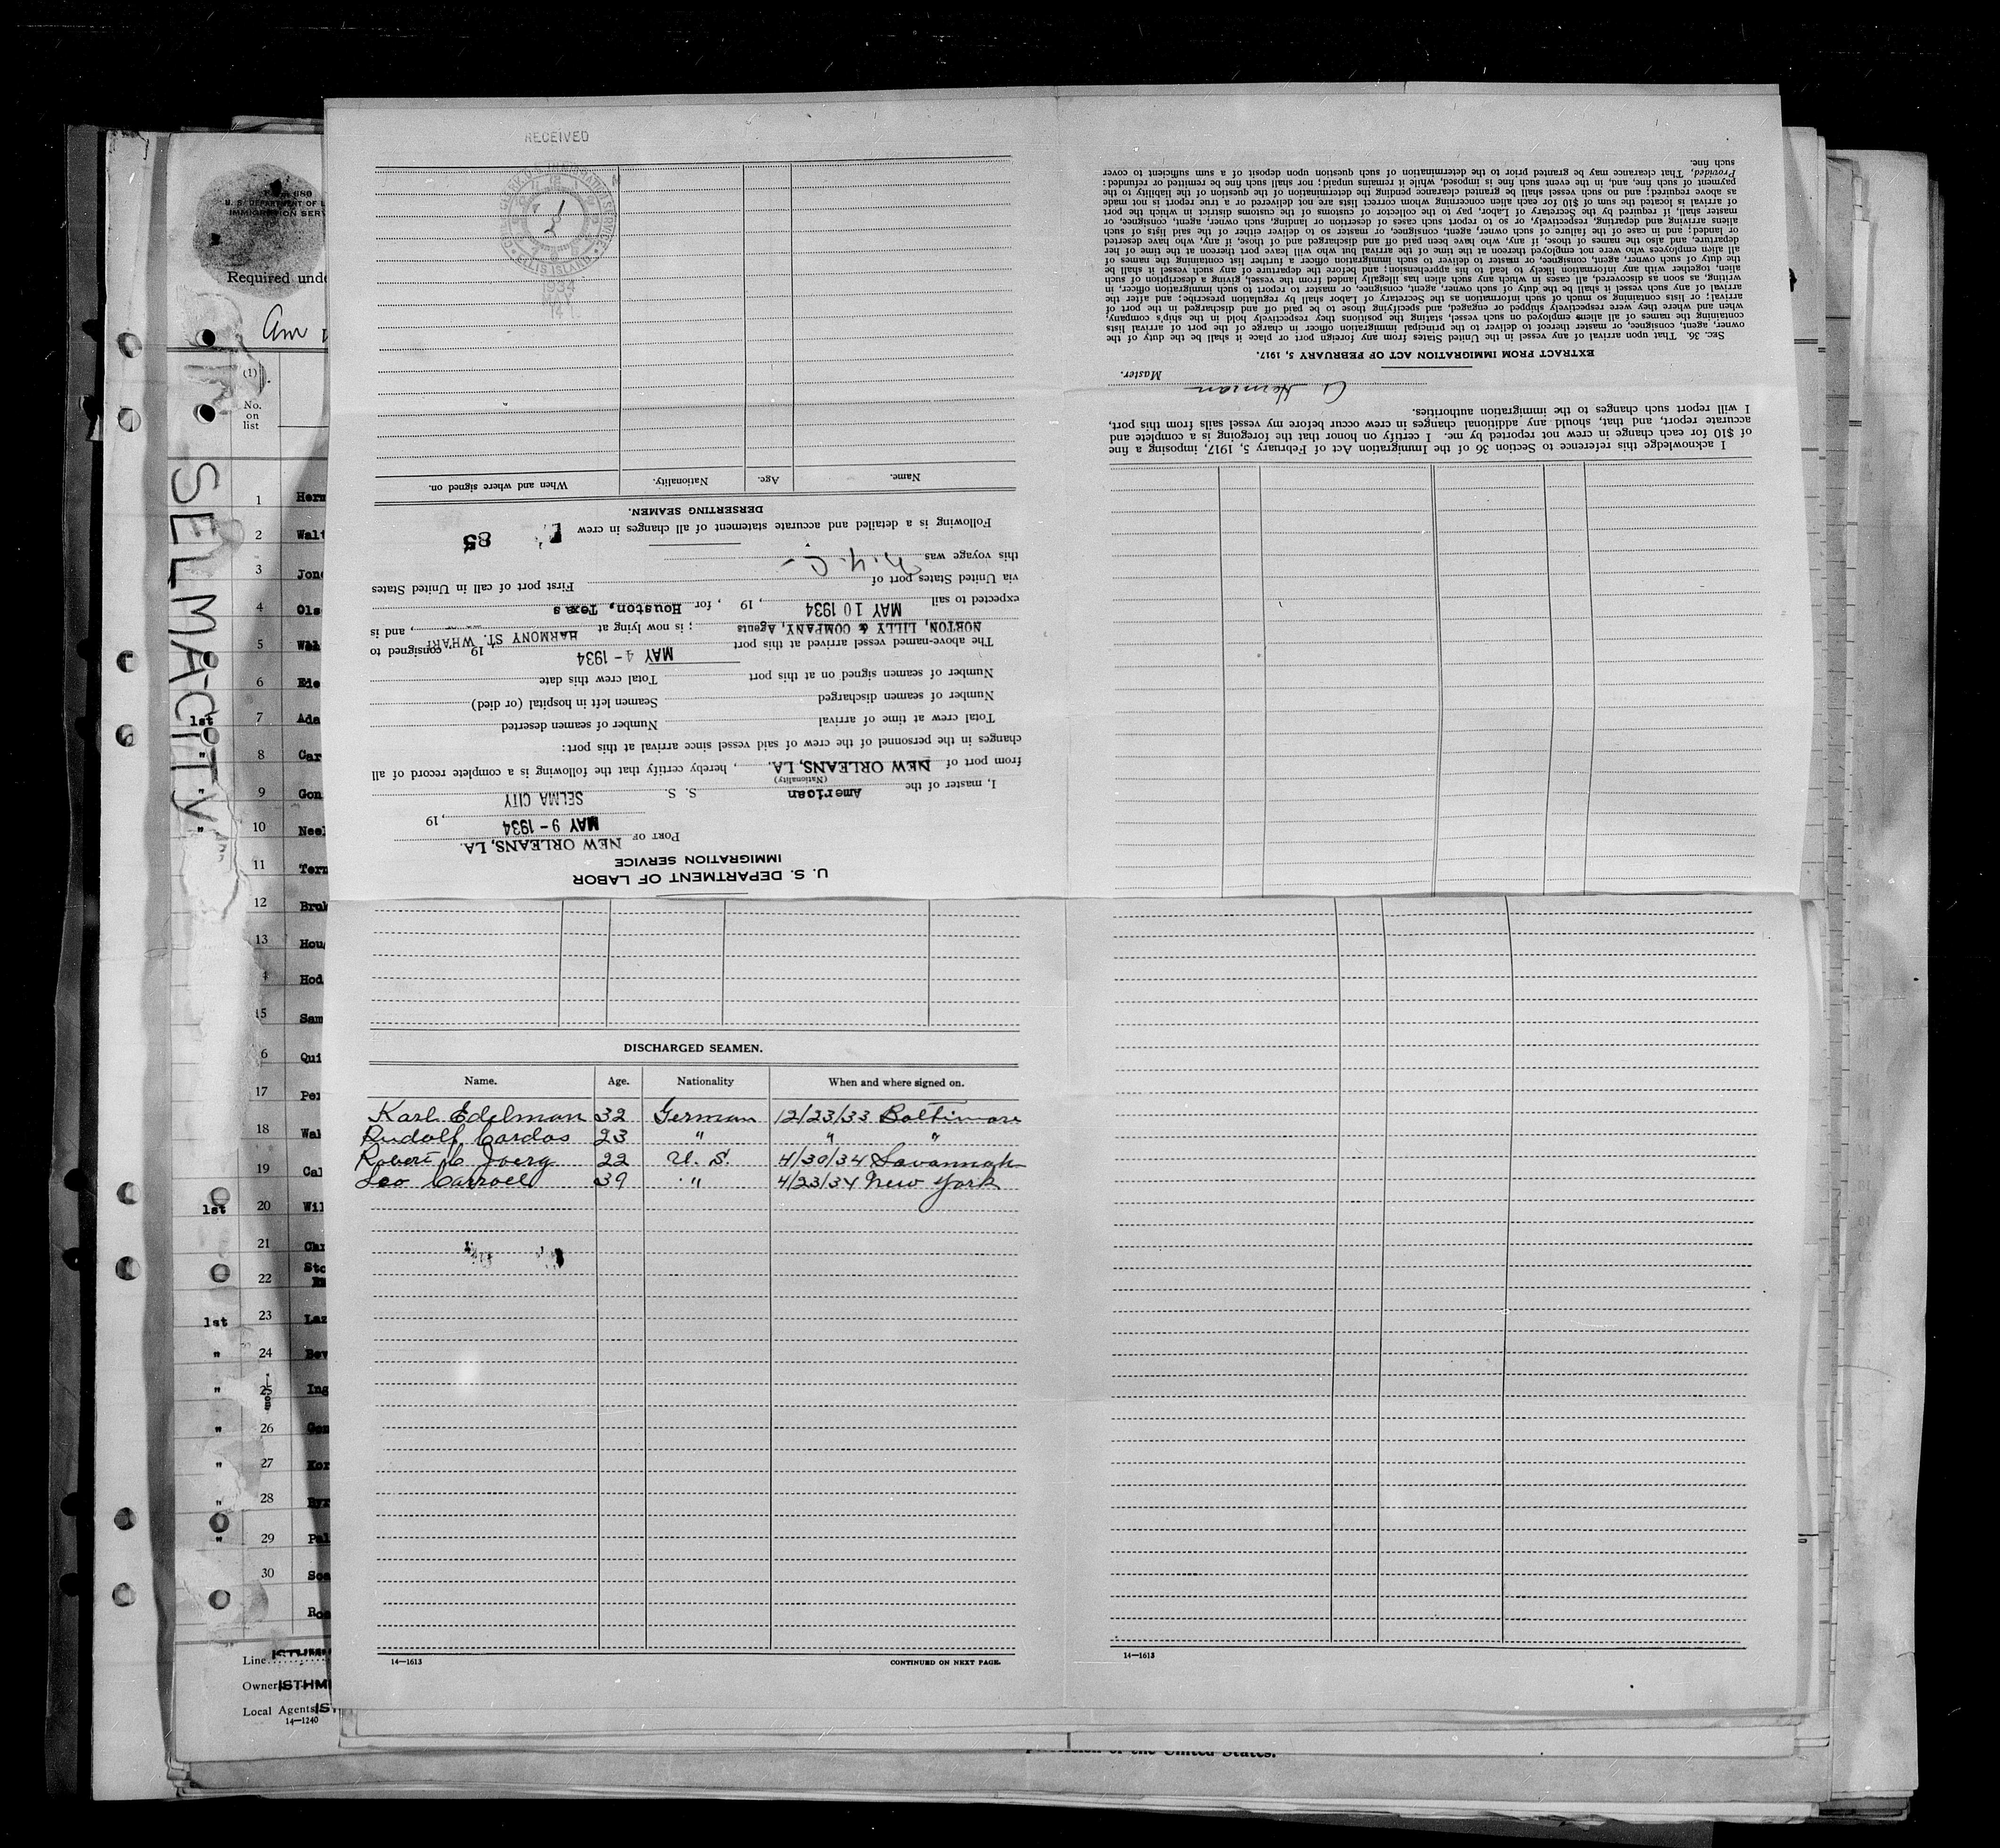 RECEIVED
U. S. DEPARTMENT OF LABOR
IMMIGRATION SERVICE
PORT OF NEW ORLEANS, LA.
MAY 9 - 1934, 19
I, master of the American S. S. SELMA CITY
(Nationality)
from port of NEW ORLEANS, LA., hereby certify that the following is a complete record of all
changes in the personnel of the crew of said vessel since arrival at this port:
Total crew at time of arrival Number of seamen deserted
Number of seamen discharged Seamen left in hospital (or died)
Number of seamen signed on at this port Total crew this date
The above-named vessel arrived at this port MAY 4 - 1934 19 consigned to
NORTON, LILLY & COMPANY, Agents; is now lying at HARMONY ST. WHARF, and is
expected to sail MAY 10 1934, 19, for Houston, Texas
via United States port of First port of call in United States
this voyage was N.Y.C.
Following is a detailed and accurate statement of all changes in crew 85
DERSERTING SEAMEN.
Name. Age. Nationality. When and where signed on.
ELLIS ISLAND
1934
MAY
14
I acknowledge this reference to Section 36 of the Immigration Act of February 5, 1917, imposing a fine
of $10 for each change in crew not reported by me. I certify on honor that the foregoing is a complete and
accurate report, and that, should any additional changes in crew occur before my vessel sails from this port,
I will report such changes to the immigration authorities.
Herman
Master.
EXTRACT FROM IMMIGRATION ACT OF FEBRUARY 5, 1917.
SEC. 36. That upon arrival of any vessel in the United States from any foreign port or place it shall be the duty of the
owner, agent, consignee, or master thereof to deliver to the principal immigration officer in charge of the port of arrival lists
containing the names of all aliens employed on such vessel, stating the positions they respectively hold in the ship's company,
when and where they were respectively shipped or engaged, and specifying those to be paid off and discharged in the port of
arrival; or lists containing so much of such information as the Secretary of Labor shall by regulation prescribe; and after the
arrival of any such vessel it shall be the duty of such owner, agent, consignee, or master to report to such immigration officer, in
writing, as soon as discovered, all cases in which any such alien has illegally landed from the vessel, giving a description of such
alien, together with any information likely to lead to his apprehension; and before the departure of any such vessel it shall be
the duty of such owner, agent, consignee, or master to deliver to such immigration officer a further list containing the names of
all alien employees who were not employed thereon at the time of the arrival but who will leave port thereon at the time of her
departure, and also the names of those, if any, who have been paid off and discharged and of those, if any, who have deserted
or landed; and in case of the failure of such owner, agent, consignee, or master so to deliver either of the said lists of such
aliens arriving and departing, respectively, or so to report such cases of desertion or landing, such owner, agent, consignee, or
master shall, if required by the Secretary of Labor, pay to the collector of customs of the customs district in which the port
of arrival is located the sum of $10 for each alien concerning whom correct lists are not delivered or a true report is not made
as above required; and no such vessel shall be granted clearance pending the determination of the question of the liability to the
payment of such fine, and, in the event such fine is imposed, while it remains unpaid; nor shall such fine be remitted or refunded:
Provided, That clearance may be granted prior to the determination of such question upon deposit of a sum sufficient to cover
such fine.
DISCHARGED SEAMEN.
Name. Age. Nationality When and where signed on.
Karl Edelman 32 German 12/23/33 Baltimore
Rudolf Cardos 23 " " "
Robert C Joerg 22 U. S. 4/30/34 Savannah
Leo Carroll 39 " 4/23/34 New York
14—1613 CONTINUED ON NEXT PAGE.
14—1613
U. S. DEPARTMENT OF L
IMMIGRATION SERV
Required unde
Am
(1)
No.
on
list
SELMA CITY
1 Herm
2 Walt
3 Jone
4 Ols
5
6 Ele
1st 7 Ada
" 8 Car
" 9 Gon
" 10 Neel
11 Tern
12 Bruk
13 Hou
4 Hod
15 Sam
6 Qui
17 Per
18 Wal
19 Cal
1st 20 Wil
21 Chr
22 Sto
1st 23 Laz
" 24 Bev
" 25 Ing
" 26 Gon
" 27 Kor
" 28 Byr
" 29 Pal
30 Sea
Roa
Line ISTHM
Owner ISTHM
Local Agents IS
14—1240
of the United States.